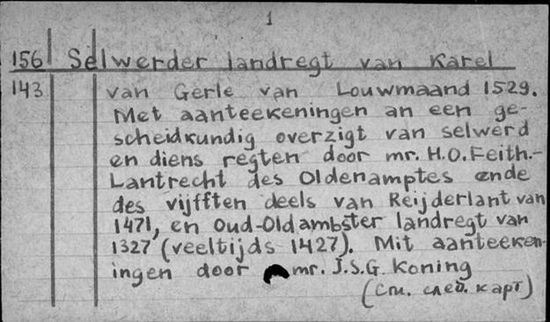 1
156 Selwerder landregt van Karel
143 van Gerle van Louwmaand 1529.
Met aanteekeningen an een ge-
scheidkundig overzigt van selwerd
en diens regten door mr. H.O. Feith.-
Lantrecht des Oldenamptes ende
des vijfften deels van Reijderlant van
1471, en Oud-Oldambster landregt van
1327 (veeltijds 1427). Mit aanteeken-
ingen door mr. J.S.G. Koning
(см. след. карт)